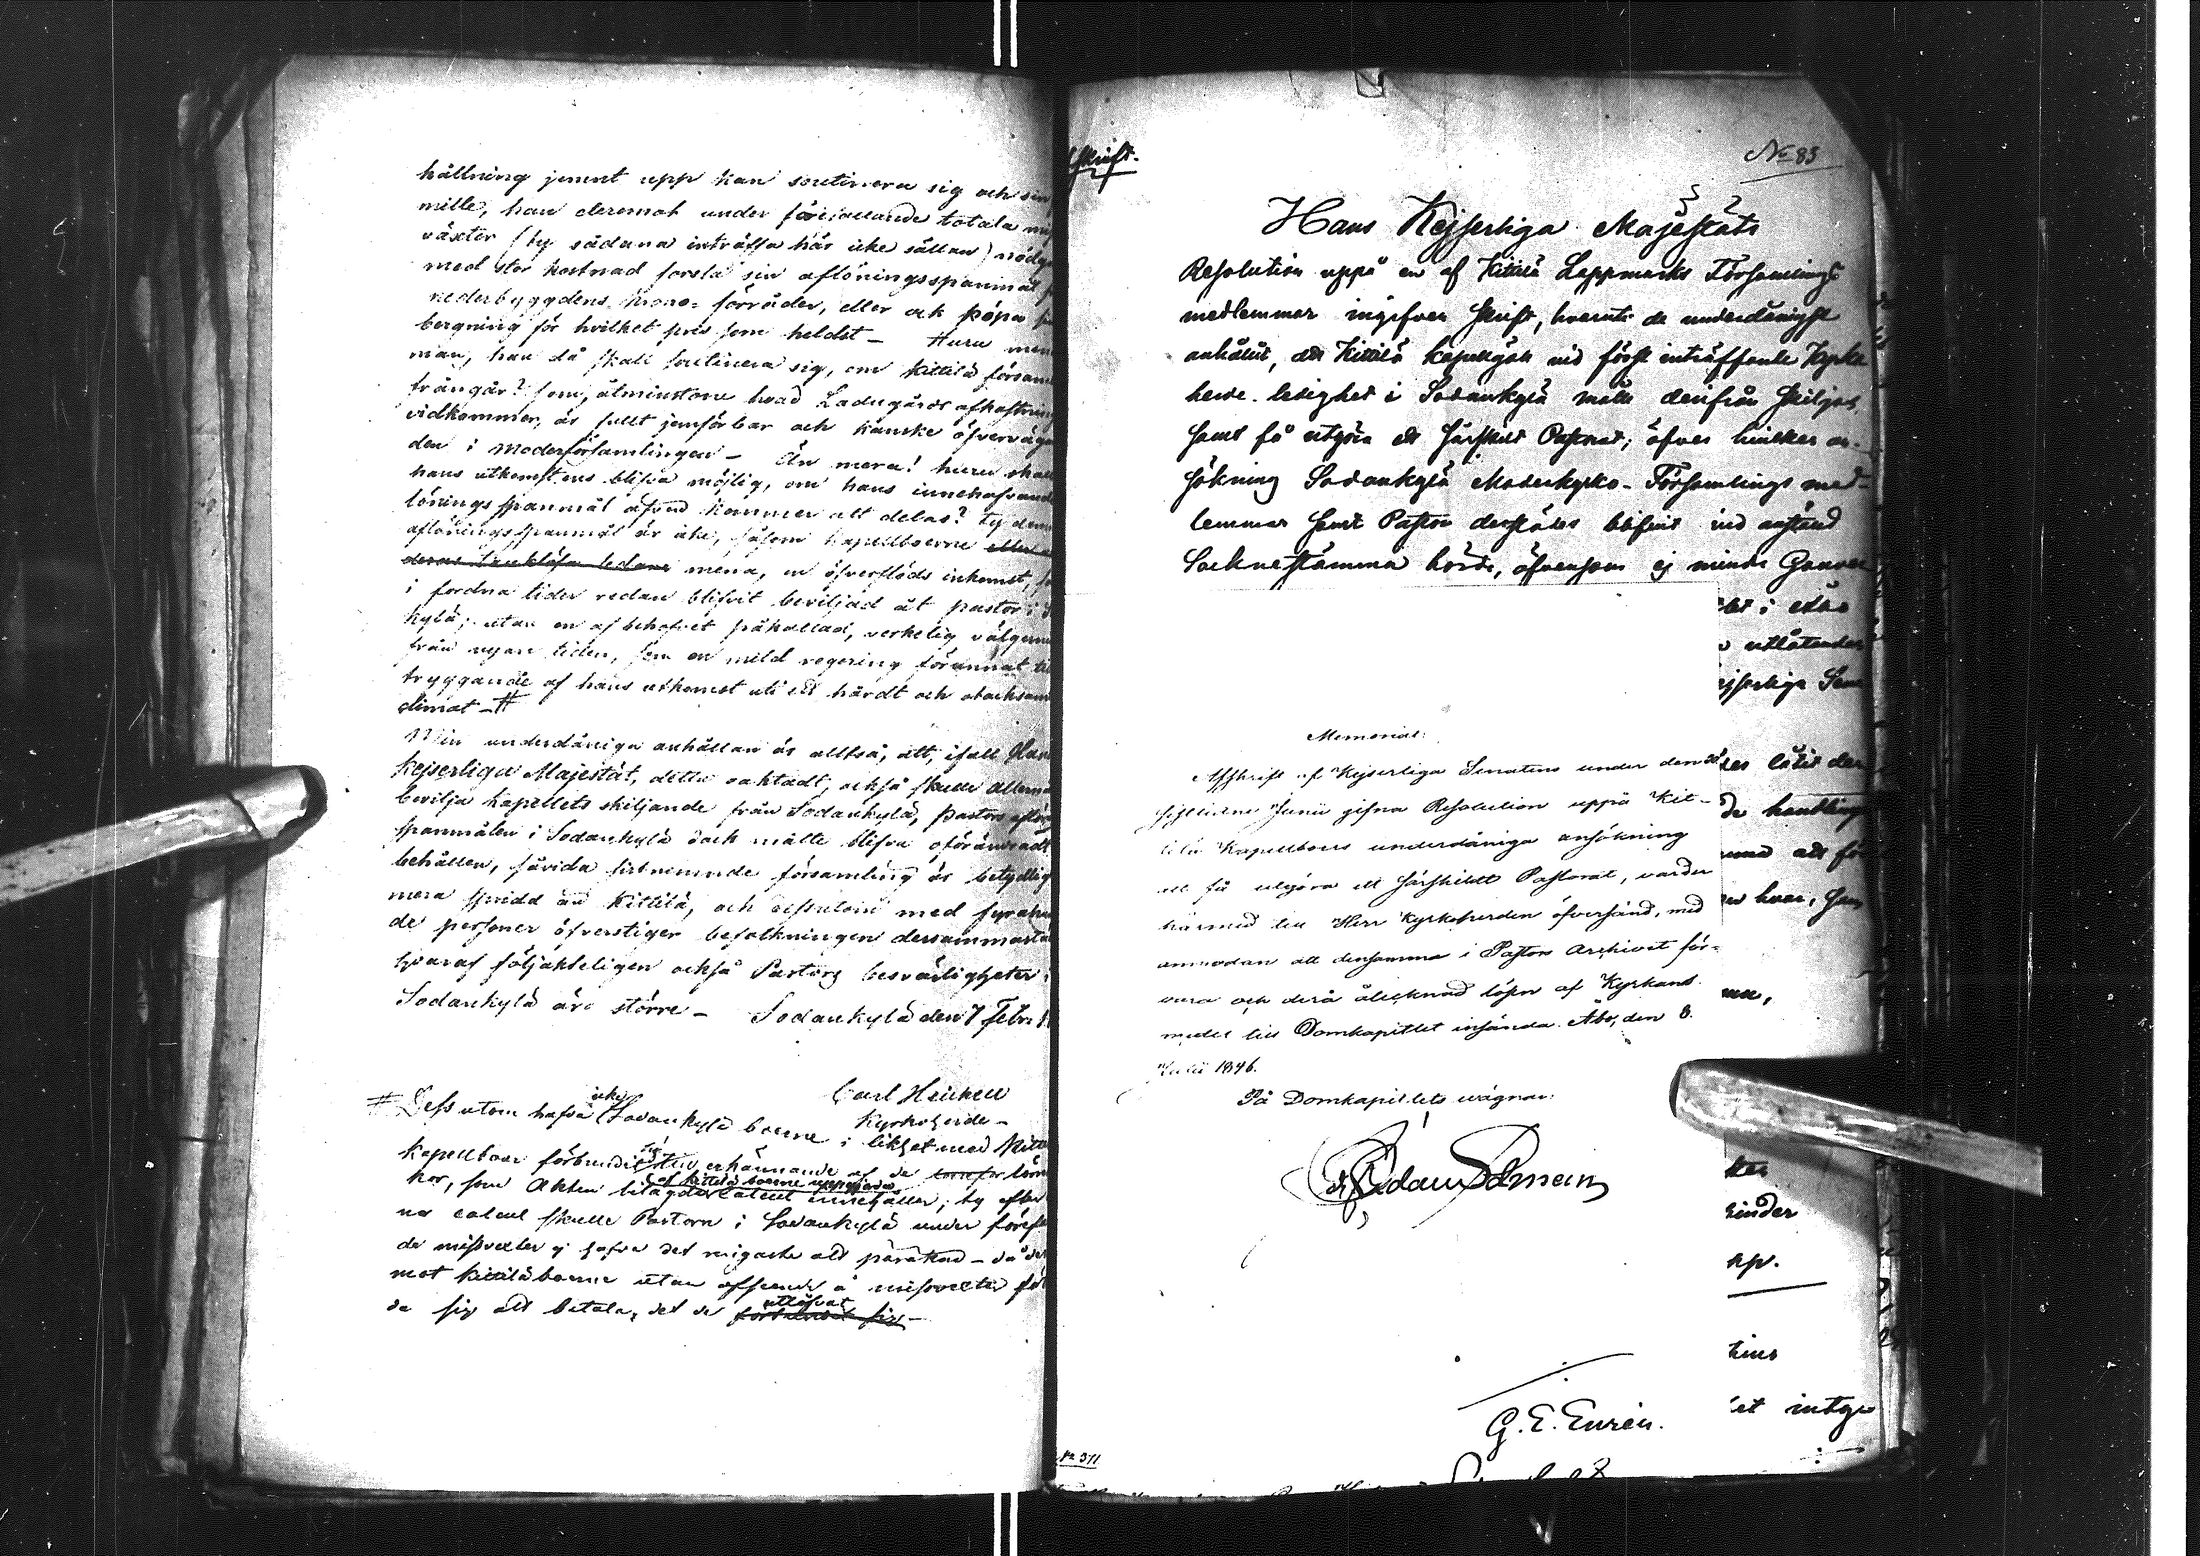 hållning jemt upp kan soutinera sig och sin
mille, han deremot under förefallande totala
växter (ty sådana inträffa här icke sällan) nödgas
med stor kostnad forsla sin aflöningsspanmål
nederbyggdens krono-förråder, eller ock köpa
bergning för hvilket pris som heldst – Huru
man, han då skall soutinera sig, om Kittilä försam
frångår? som, åtminstone hvad Ladugårds afkastning
vidkommer, är fullt jemförbar och kanske öfvervägande
den i Moderförsamlingen – Än mera! huru skall
hans utkomst ens blifva möjlig, om hans innehafvande
lönings spanmål äfven kommer att delas? ty denna
aflöningsspanmål är icke, såsom Kapellboerne eller
deras ledare mena, en öfverflöds inkomst,
i fordna tider redan blifvit beviljad åt pastor i
kylä; utan en af behofvet påkallad, verkelig välgerning
från nyare tiden, som en mild regering förunnat till
tryggande af hans utkomst uti ett hårdt och otacksamt
climat – #
Min underdåniga anhållan är alltså, att, ifall Hans
Kejserliga Majestät, detta oaktadt, också skulle Allernå
bevilja kapellets skiljande från Sodankylä, Pastors aflö
spanmålen i Sodankylä dock måtte blifva oförändradt
behållen, såvida sistnemnde församling är betydlig
mera spridd än Kittilä, och dessutom med fyrahun
de personer öfverstiger befolkningen dersammastä
hvaraf följakteligen också Pastors besvärligheter i
Sodankylä äro större – Sodankylä den 7 Febr.
Carl Heickell
Kyrkoherde –
# Dess utom hafva icke Sodankylä boerne i likhet med Kitti
kapellboer förbundit sig till erhännande af de
kor, som Akten bilagde af Kittilä boerne uppgjorda Calcul innehåller; ty efter
na calcul skulle Pastorn i Sodankylä under föref
de missvexter ej hafva det ringaste att påräkna – då der
mot Kittiläboerne utan afseende å missvexter för
da sig att betala, det de utlofvat förbundit sig –
skrift.
No 83
Hans Kejserliga Majestäts
Resolution uppå en af Kittilä Lappmarks Församlings
medlemmar ingifven skrift, hvaruti de underdånigst
anhållit, att Kittilä kapellgäll vid först inträffande Kyrko
herde ledighet i Sodankylä måtte derifrån skiljas
samt få utgöra ett särskilt Pastorat; öfver hvilken an-
sökning Sodankylä Moderkyrko-Församlings med-
lemmar samt Pastor derstädes blifvit vid anstäld
Socknestämma hörde, äfvensom ej mindre Gouver
utlåtande
ejserliga Sena
Memorial.
Afskrift af Kejserliga Senatens under den
sistledne Junii gifna Resolution uppå Kit-
tilä Kapellboers underdåniga ansökning
att få utgöra ett särskildt Pastorat, varder
härmed till Herr Kyrkoherden öfversänd, med
anmodan att densamma i Pastors Archivet för-
vara och derå ålöpnad lösen af Kyrkans
medel till Domkapitlet insända. Åbo, den 8.
Julii 1846.
På Domkapitlets vägnar:
G. E. Eurén.
ter låtit den
de handling
hvar, som
kp.
et intyga
No 371